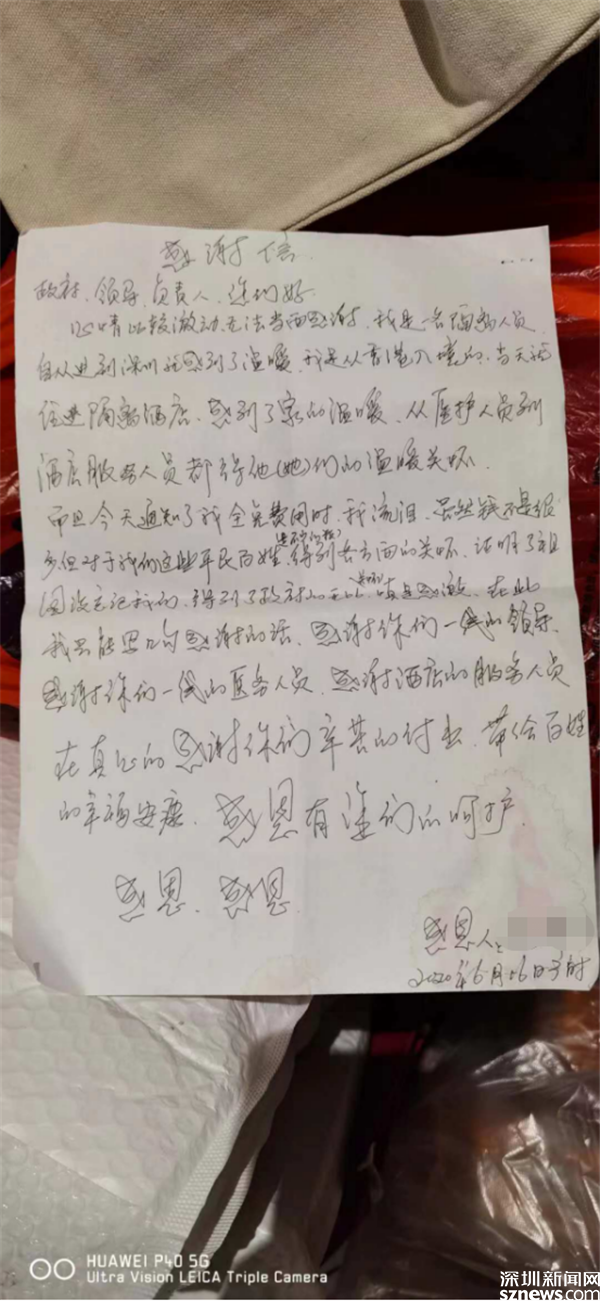 感谢信
政府、领导、负责人、您们好
心情比较激动无法当面感谢，我是一名隔离人员，
自从进到深圳就感到了温暖，我是从香港入境的，当天就
住进隔离酒店，感到了家的温暖，从医护人员到
酒店服务人员都得他(她)们的温暖关怀
而且今天通知了我全免费用时，我流泪，虽然钱不是很
多但对于我们这些平民百姓，得到各方面的关怀，证明了祖
国没忘记我们，得到了政府的 真是感激，在此
我只能写几句感谢的话，感谢你们一线的领导，
感谢你们一线的医务人员，感谢酒店的服务人员
在真心的感谢你们辛苦的付出，带给百姓
的幸福安康，感恩有您们的呵护
感恩、感恩
感恩人：
2020年6月06日
HUAWEI P40 5G
Ultra Vision LEICA Triple Camera
深圳新闻网
sznews.com